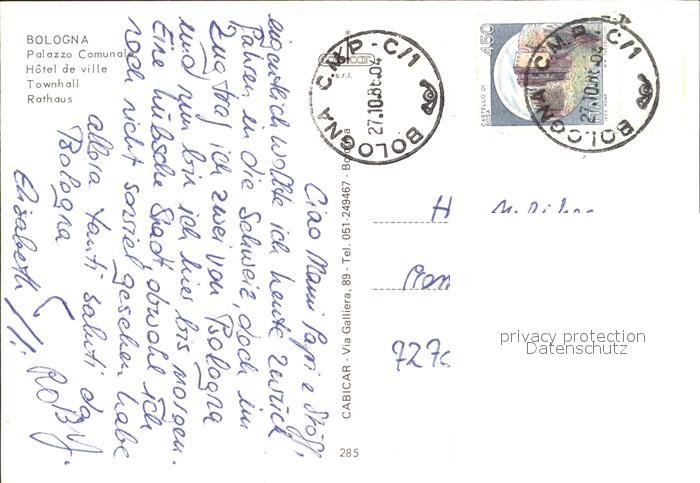 BOLOGNA
Palazzo Comunal
Hôtel de ville
Townhall
Rathaus
Ciao Mami Papi
eigentlich wollte ich heute zurück
fahren in die Schweiz, doch im
Zug traf ich zwei von Bologna
und nun bin ich hier bis morgen.
Eine hübsche Stadt, obwohl ich
noch nicht soviel gesehen habe
allora tanti saluti da
Bologna
Elisabeth
CABICAR - Via Galliera, 89 - Tel. 051-249467 - Bologna
s.r.l.
285
BOLOGNA C.M.P - C/1
27.10.86.04
450
CASTELLO DI
BOLOGNA C.M.P - C/1
727
privacy protection
Datenschutz